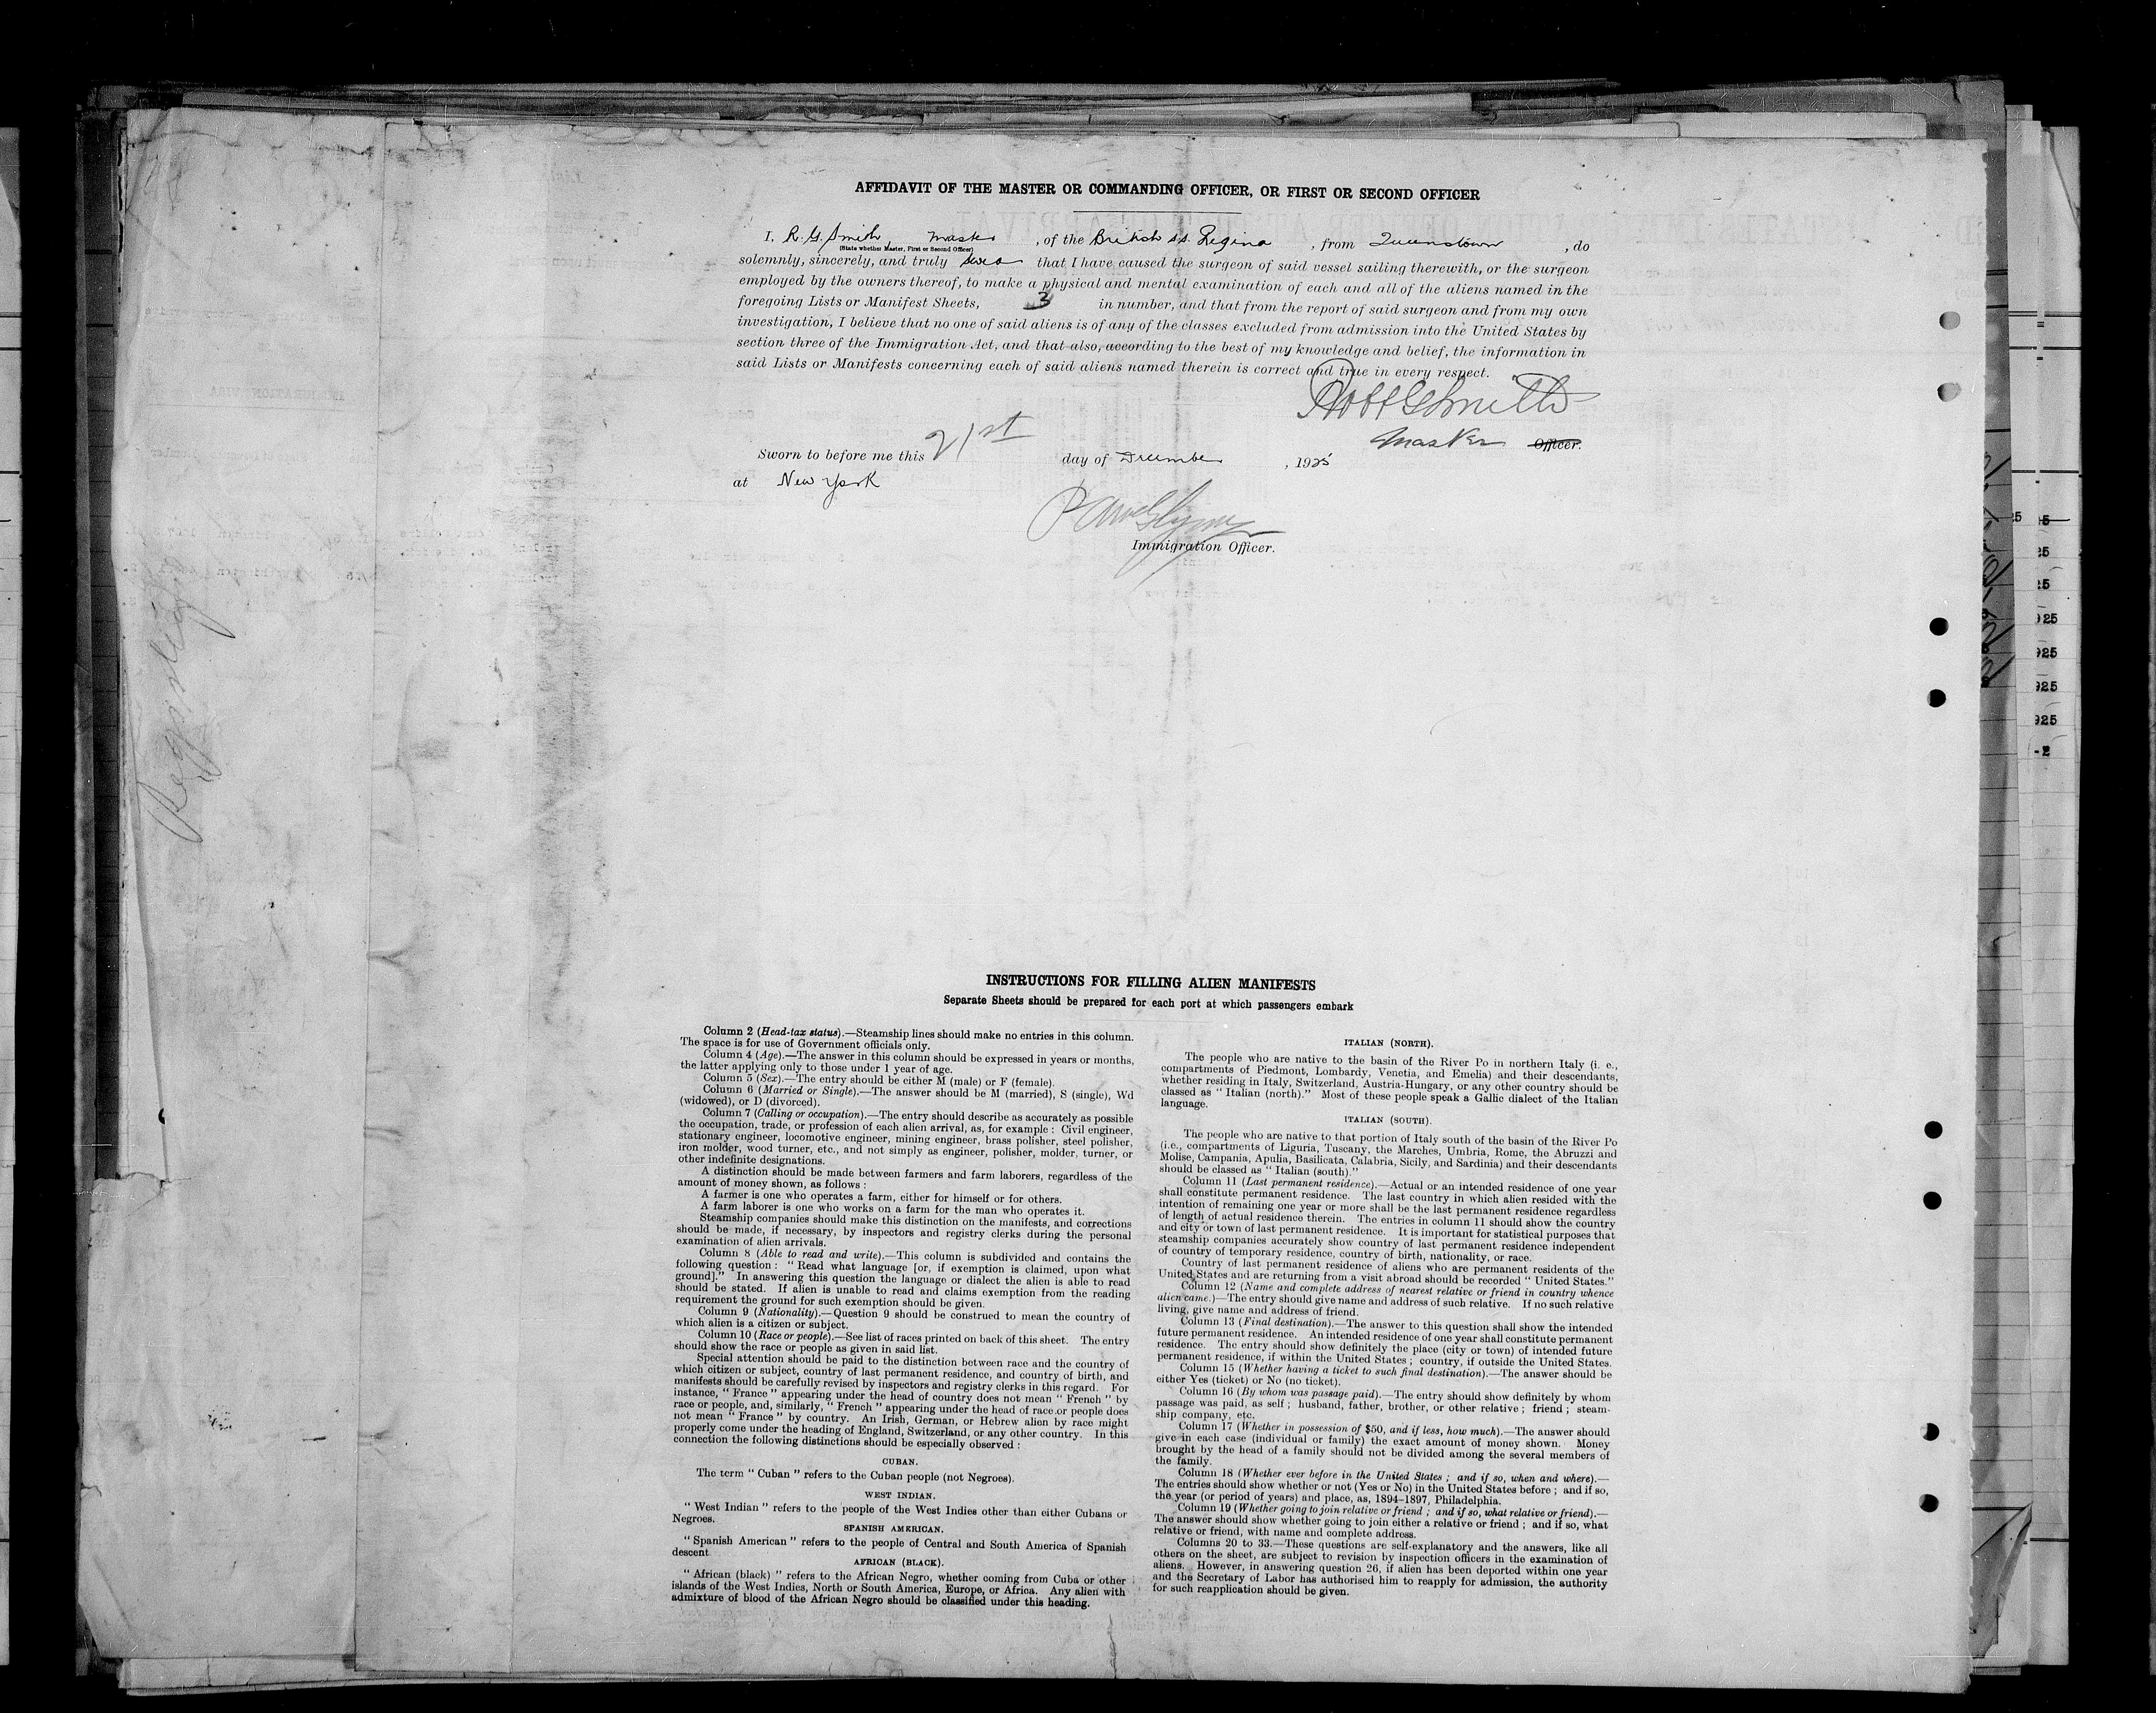 AFFIDAVIT OF THE MASTER OR COMMANDING OFFICER, OR FIRST OR SECOND OFFICER
I, R. G. Smith, Master, of the British s.s. Regina, from Queenstown, do
(State whether Master, First or Second Officer)
solemnly, sincerely, and truly swear that I have caused the surgeon of said vessel sailing therewith, or the surgeon
employed by the owners thereof, to make a physical and mental examination of each and all of the aliens named in the
foregoing Lists or Manifest Sheets, 3 in number, and that from the report of said surgeon and from my own
investigation, I believe that no one of said aliens is of any of the classes excluded from admission into the United States by
section three of the Immigration Act, and that also, according to the best of my knowledge and belief, the information in
said Lists or Manifests concerning each of said aliens named therein is correct and true in every respect.
Robt G Smith
Master Officer.
Sworn to before me this 21st day of December, 1925
at New York
Immigration Officer.
INSTRUCTIONS FOR FILLING ALIEN MANIFESTS
Separate Sheets should be prepared for each port at which passengers embark
Column 2 (Head-tax status).—Steamship lines should make no entries in this column.
The space is for use of Government officials only.
Column 4 (Age).—The answer in this column should be expressed in years or months,
the latter applying only to those under 1 year of age.
Column 5 (Sex).—The entry should be either M (male) or F (female).
Column 6 (Married or Single).—The answer should be M (married), S (single), Wd
(widowed), or D (divorced).
Column 7 (Calling or occupation).—The entry should describe as accurately as possible
the occupation, trade, or profession of each alien arrival, as, for example : Civil engineer,
stationary engineer, locomotive engineer, mining engineer, brass polisher, steel polisher,
iron molder, wood turner, etc., and not simply as engineer, polisher, molder, turner, or
other indefinite designations.
A distinction should be made between farmers and farm laborers, regardless of the
amount of money shown, as follows :
A farmer is one who operates a farm, either for himself or for others.
A farm laborer is one who works on a farm for the man who operates it.
Steamship companies should make this distinction on the manifests, and corrections
should be made, if necessary, by inspectors and registry clerks during the personal
examination of alien arrivals.
Column 8 (Able to read and write).—This column is subdivided and contains the
following question : " Read what language [or, if exemption is claimed, upon what
ground]." In answering this question the language or dialect the alien is able to read
should be stated. If alien is unable to read and claims exemption from the reading
requirement the ground for such exemption should be given.
Column 9 (Nationality).—Question 9 should be construed to mean the country of
which alien is a citizen or subject.
Column 10 (Race or people).—See list of races printed on back of this sheet. The entry
should show the race or people as given in said list.
Special attention should be paid to the distinction between race and the country of
which citizen or subject, country of last permanent residence, and country of birth, and
manifests should be carefully revised by inspectors and registry clerks in this regard. For
instance, " France " appearing under the head of country does not mean " French " by
race or people, and, similarly, " French " appearing under the head of race or people does
not mean " France " by country. An Irish, German, or Hebrew alien by race might
properly come under the heading of England, Switzerland, or any other country. In this
connection the following distinctions should be especially observed :
CUBAN.
The term " Cuban " refers to the Cuban people (not Negroes).
WEST INDIAN.
" West Indian " refers to the people of the West Indies other than either Cubans or
Negroes.
SPANISH AMERICAN.
" Spanish American " refers to the people of Central and South America of Spanish
descent
AFRICAN (BLACK).
" African (black) " refers to the African Negro, whether coming from Cuba or other
islands of the West Indies, North or South America, Europe, or Africa. Any alien with
admixture of blood of the African Negro should be classified under this heading.
ITALIAN (NORTH).
The people who are native to the basin of the River Po in northern Italy (i. e.,
compartments of Piedmont, Lombardy, Venetia, and Emelia) and their descendants,
whether residing in Italy, Switzerland, Austria-Hungary, or any other country should be
classed as " Italian (north)." Most of these people speak a Gallic dialect of the Italian
language.
ITALIAN (SOUTH).
The people who are native to that portion of Italy south of the basin of the River Po
(i.e., compartments of Liguria, Tuscany, the Marches, Umbria, Rome, the Abruzzi and
Molise, Campania, Apulia, Basilicata, Calabria, Sicily, and Sardinia) and their descendants
should be classed as " Italian (south)."
Column 11 (Last permanent residence).—Actual or an intended residence of one year
shall constitute permanent residence. The last country in which alien resided with the
intention of remaining one year or more shall be the last permanent residence regardless
of length of actual residence therein. The entries in column 11 should show the country
and city or town of last permanent residence. It is important for statistical purposes that
steamship companies accurately show country of last permanent residence independent
of country of temporary residence, country of birth, nationality, or race.
Country of last permanent residence of aliens who are permanent residents of the
United States and are returning from a visit abroad should be recorded " United States."
Column 12 (Name and complete address of nearest relative or friend in country whence
alien came.)—The entry should give name and address of such relative. If no such relative
living, give name and address of friend.
Column 13 (Final destination).—The answer to this question shall show the intended
future permanent residence. An intended residence of one year shall constitute permanent
residence. The entry should show definitely the place (city or town) of intended future
permanent residence, if within the United States ; country, if outside the United States.
Column 15 (Whether having a ticket to such final destination).—The answer should be
either Yes (ticket) or No (no ticket).
Column 16 (By whom was passage paid).—The entry should show definitely by whom
passage was paid, as self ; husband, father, brother, or other relative ; friend ; steam-
ship company, etc.
Column 17 (Whether in possession of $50, and if less, how much).—The answer should
give in each case (individual or family) the exact amount of money shown. Money
brought by the head of a family should not be divided among the several members of
the family.
Column 18 (Whether ever before in the United States ; and if so, when and where).—
The entries should show whether or not (Yes or No) in the United States before ; and if so,
the year (or period of years) and place, as, 1894–1897, Philadelphia.
Column 19 (Whether going to join relative or friend ; and if so, what relative or friend).—
The answer should show whether going to join either a relative or friend ; and if so, what
relative or friend, with name and complete address.
Columns 20 to 33.—These questions are self-explanatory and the answers, like all
others on the sheet, are subject to revision by inspection officers in the examination of
aliens. However, in answering question 26, if alien has been deported within one year
and the Secretary of Labor has authorised him to reapply for admission, the authority
for such reapplication should be given.